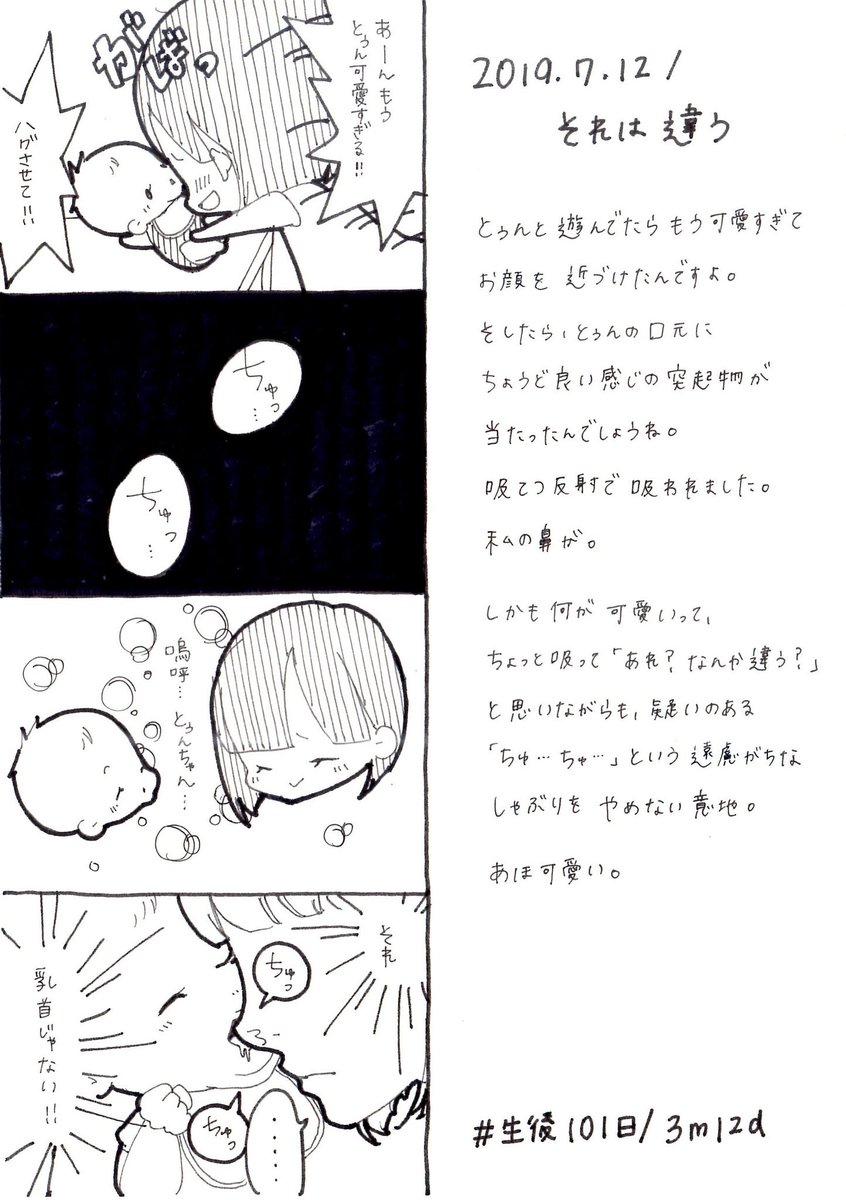 あーんもう
とぅん可愛すぎる!!
がばっ
ハグさせて!!
ちゅっ…
ちゅっ…
嗚呼…
とぅんちゃん…
それ
ちゅっ
乳首じゃない!!
ちゅっ
……
2019.7.12/
それは違う
とぅんと遊んでたらもう可愛すぎて
お顔を近づけたんですよ。
そしたら、とぅんの口元に
ちょうど良い感じの突起物が
当たったんでしょうね。
吸てつ反射で吸われました。
私の鼻が。
しかも何が可愛いって、
ちょっと吸って「あれ?なんか違う?」
と思いながらも、疑いのある
「ちゅ…ちゅ…」という遠慮がちな
しゃぶりをやめない意地。
あほ可愛い。
#生後101日/3m12d